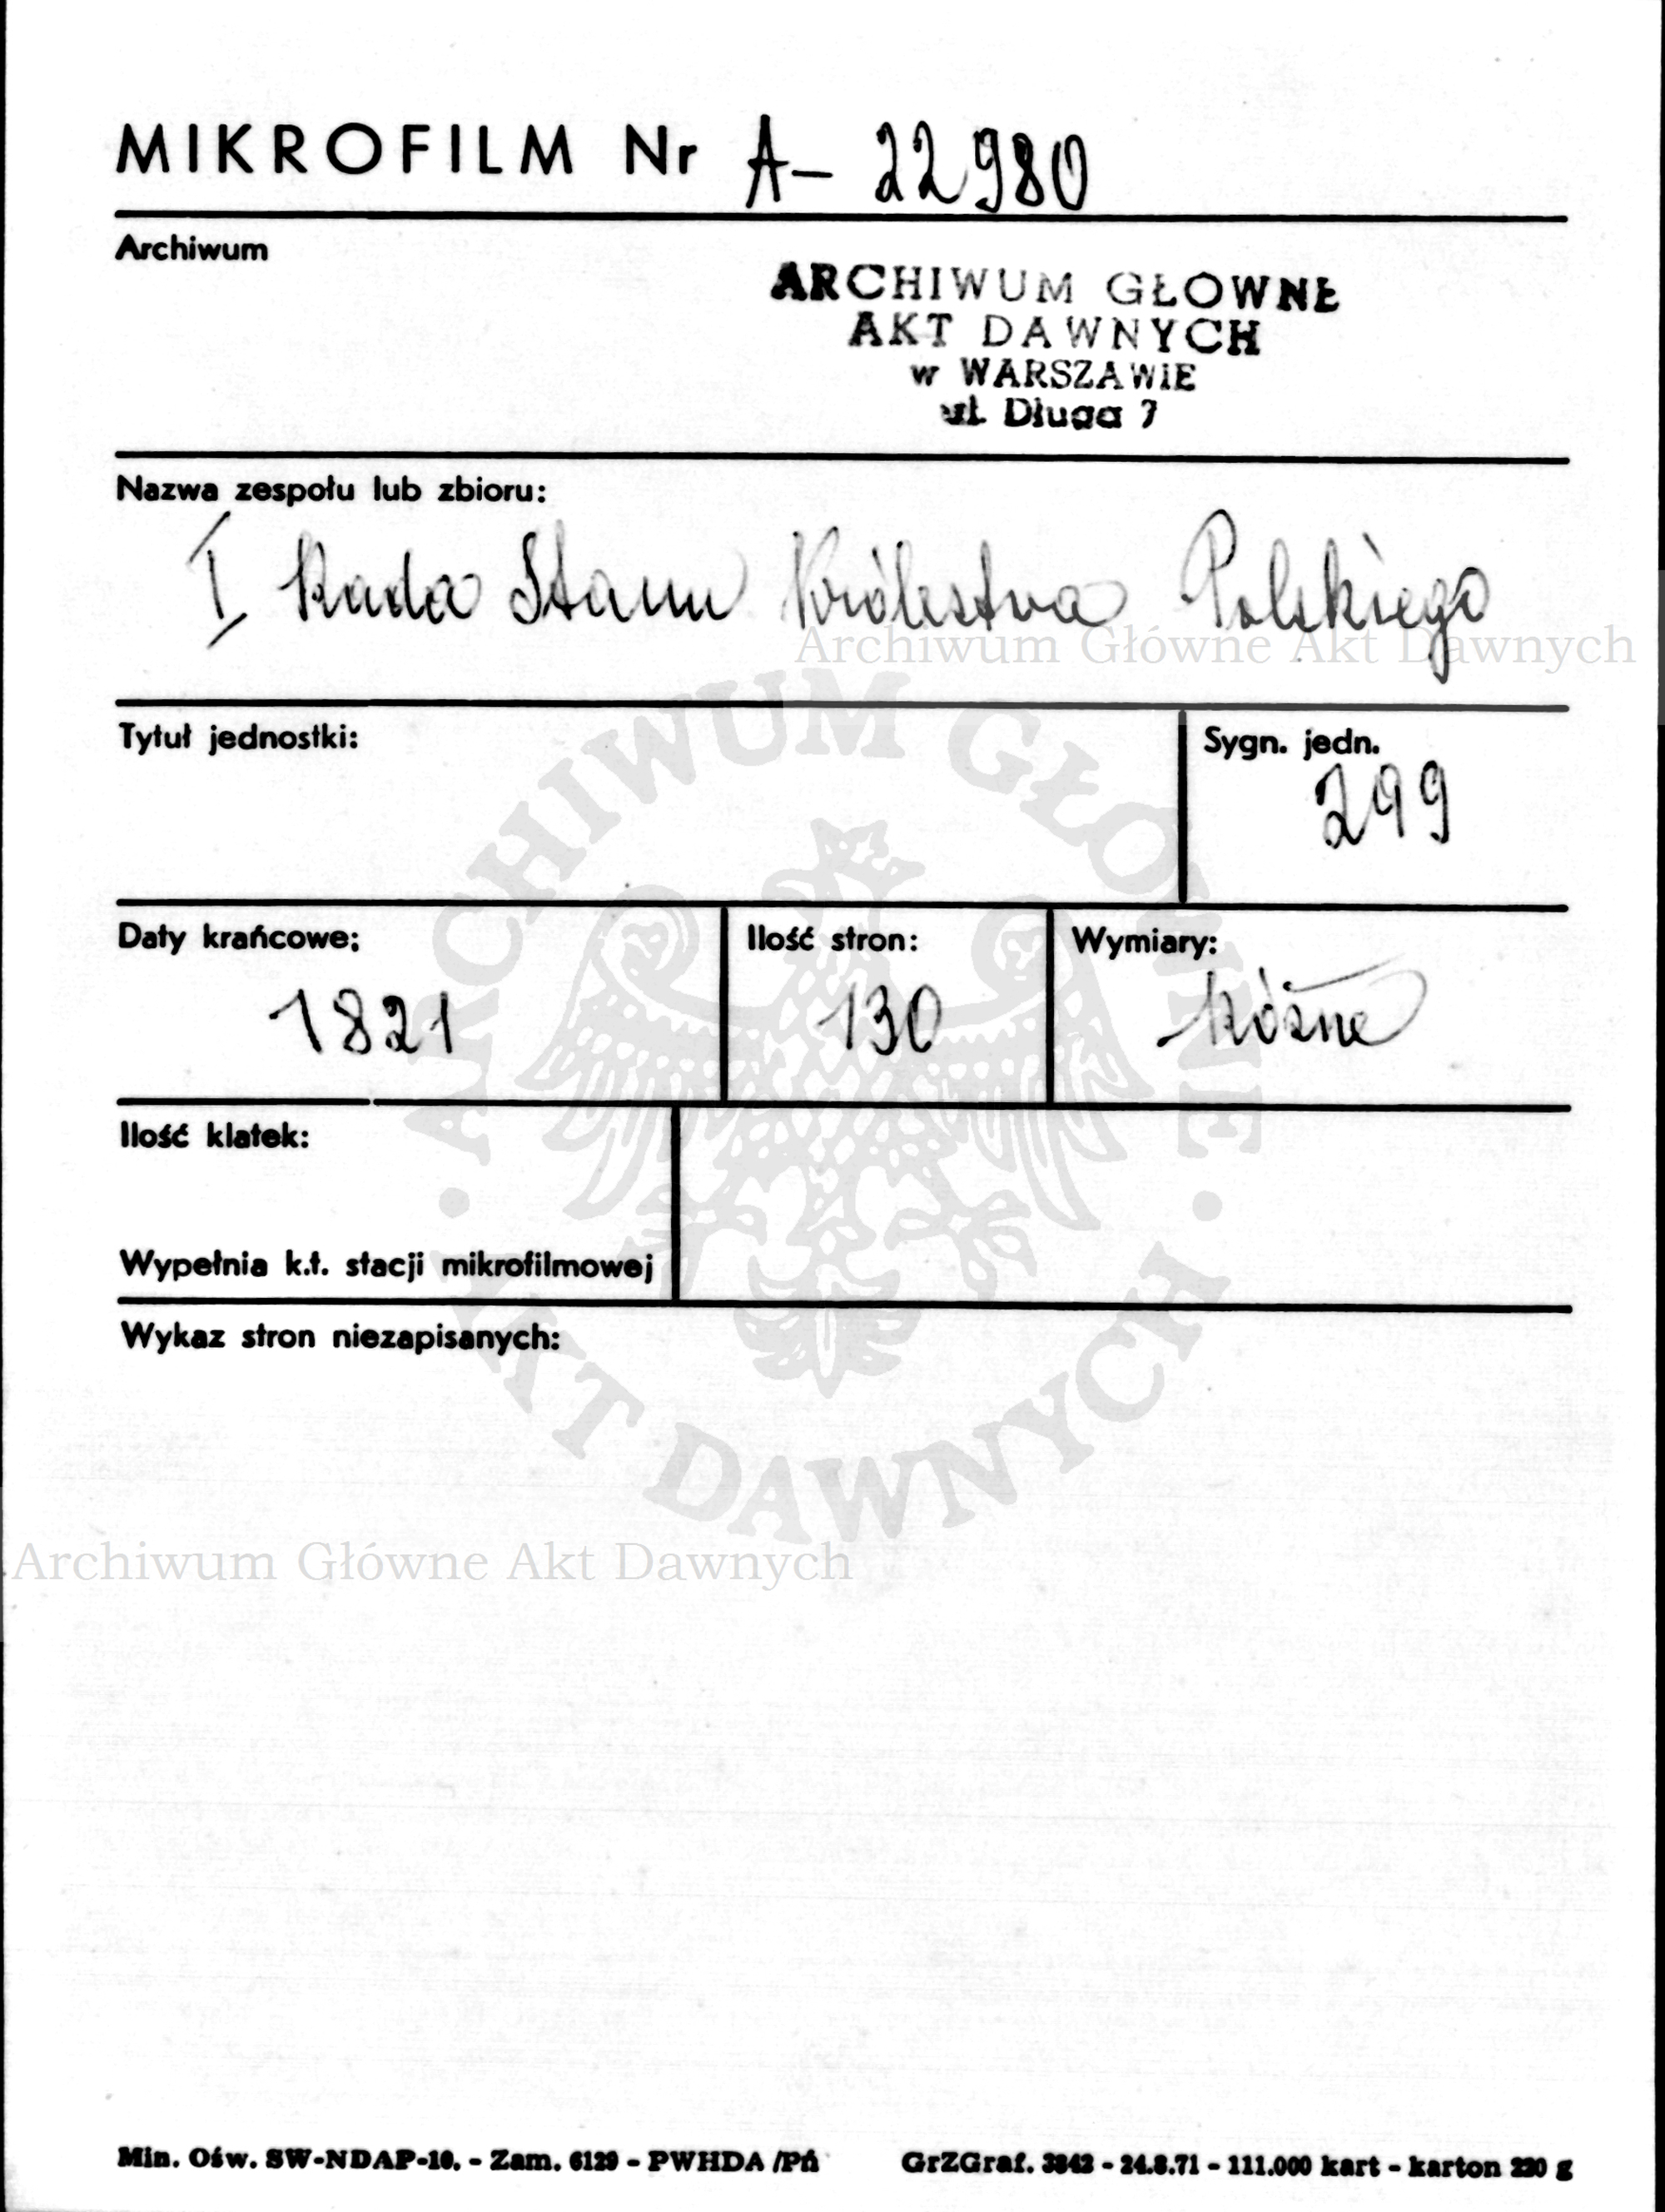 MIKROFILM Nr A- 22980
Archiwum
ARCHIWUM GŁOWNE
AKT DAWNYCH
w WARSZAWIE
ul. Długa 7
Nazwa zespołu lub zbioru:
I Rada Stanu Królestwa Polskiego
Archiwum Główne Akt Dawnych
Tytuł jednostki:
Sygn. jedn.
299
Daty krańcowe:
1821
Ilość stron:
130
Wymiary:
Różne
Ilość klatek:
Wypełnia k.t. stacji mikrofilmowej
Wykaz stron niezapisanych:
ARCHIWUM GŁÓWNE
AKT DAWNYCH
Archiwum Główne Akt Dawnych
Min. Ośw. SW-NDAP-10. - Zam. 6129 - PWHDA /Pń GrZGraf. 3842 - 24.8.71 - 111.000 kart - karton 220 g